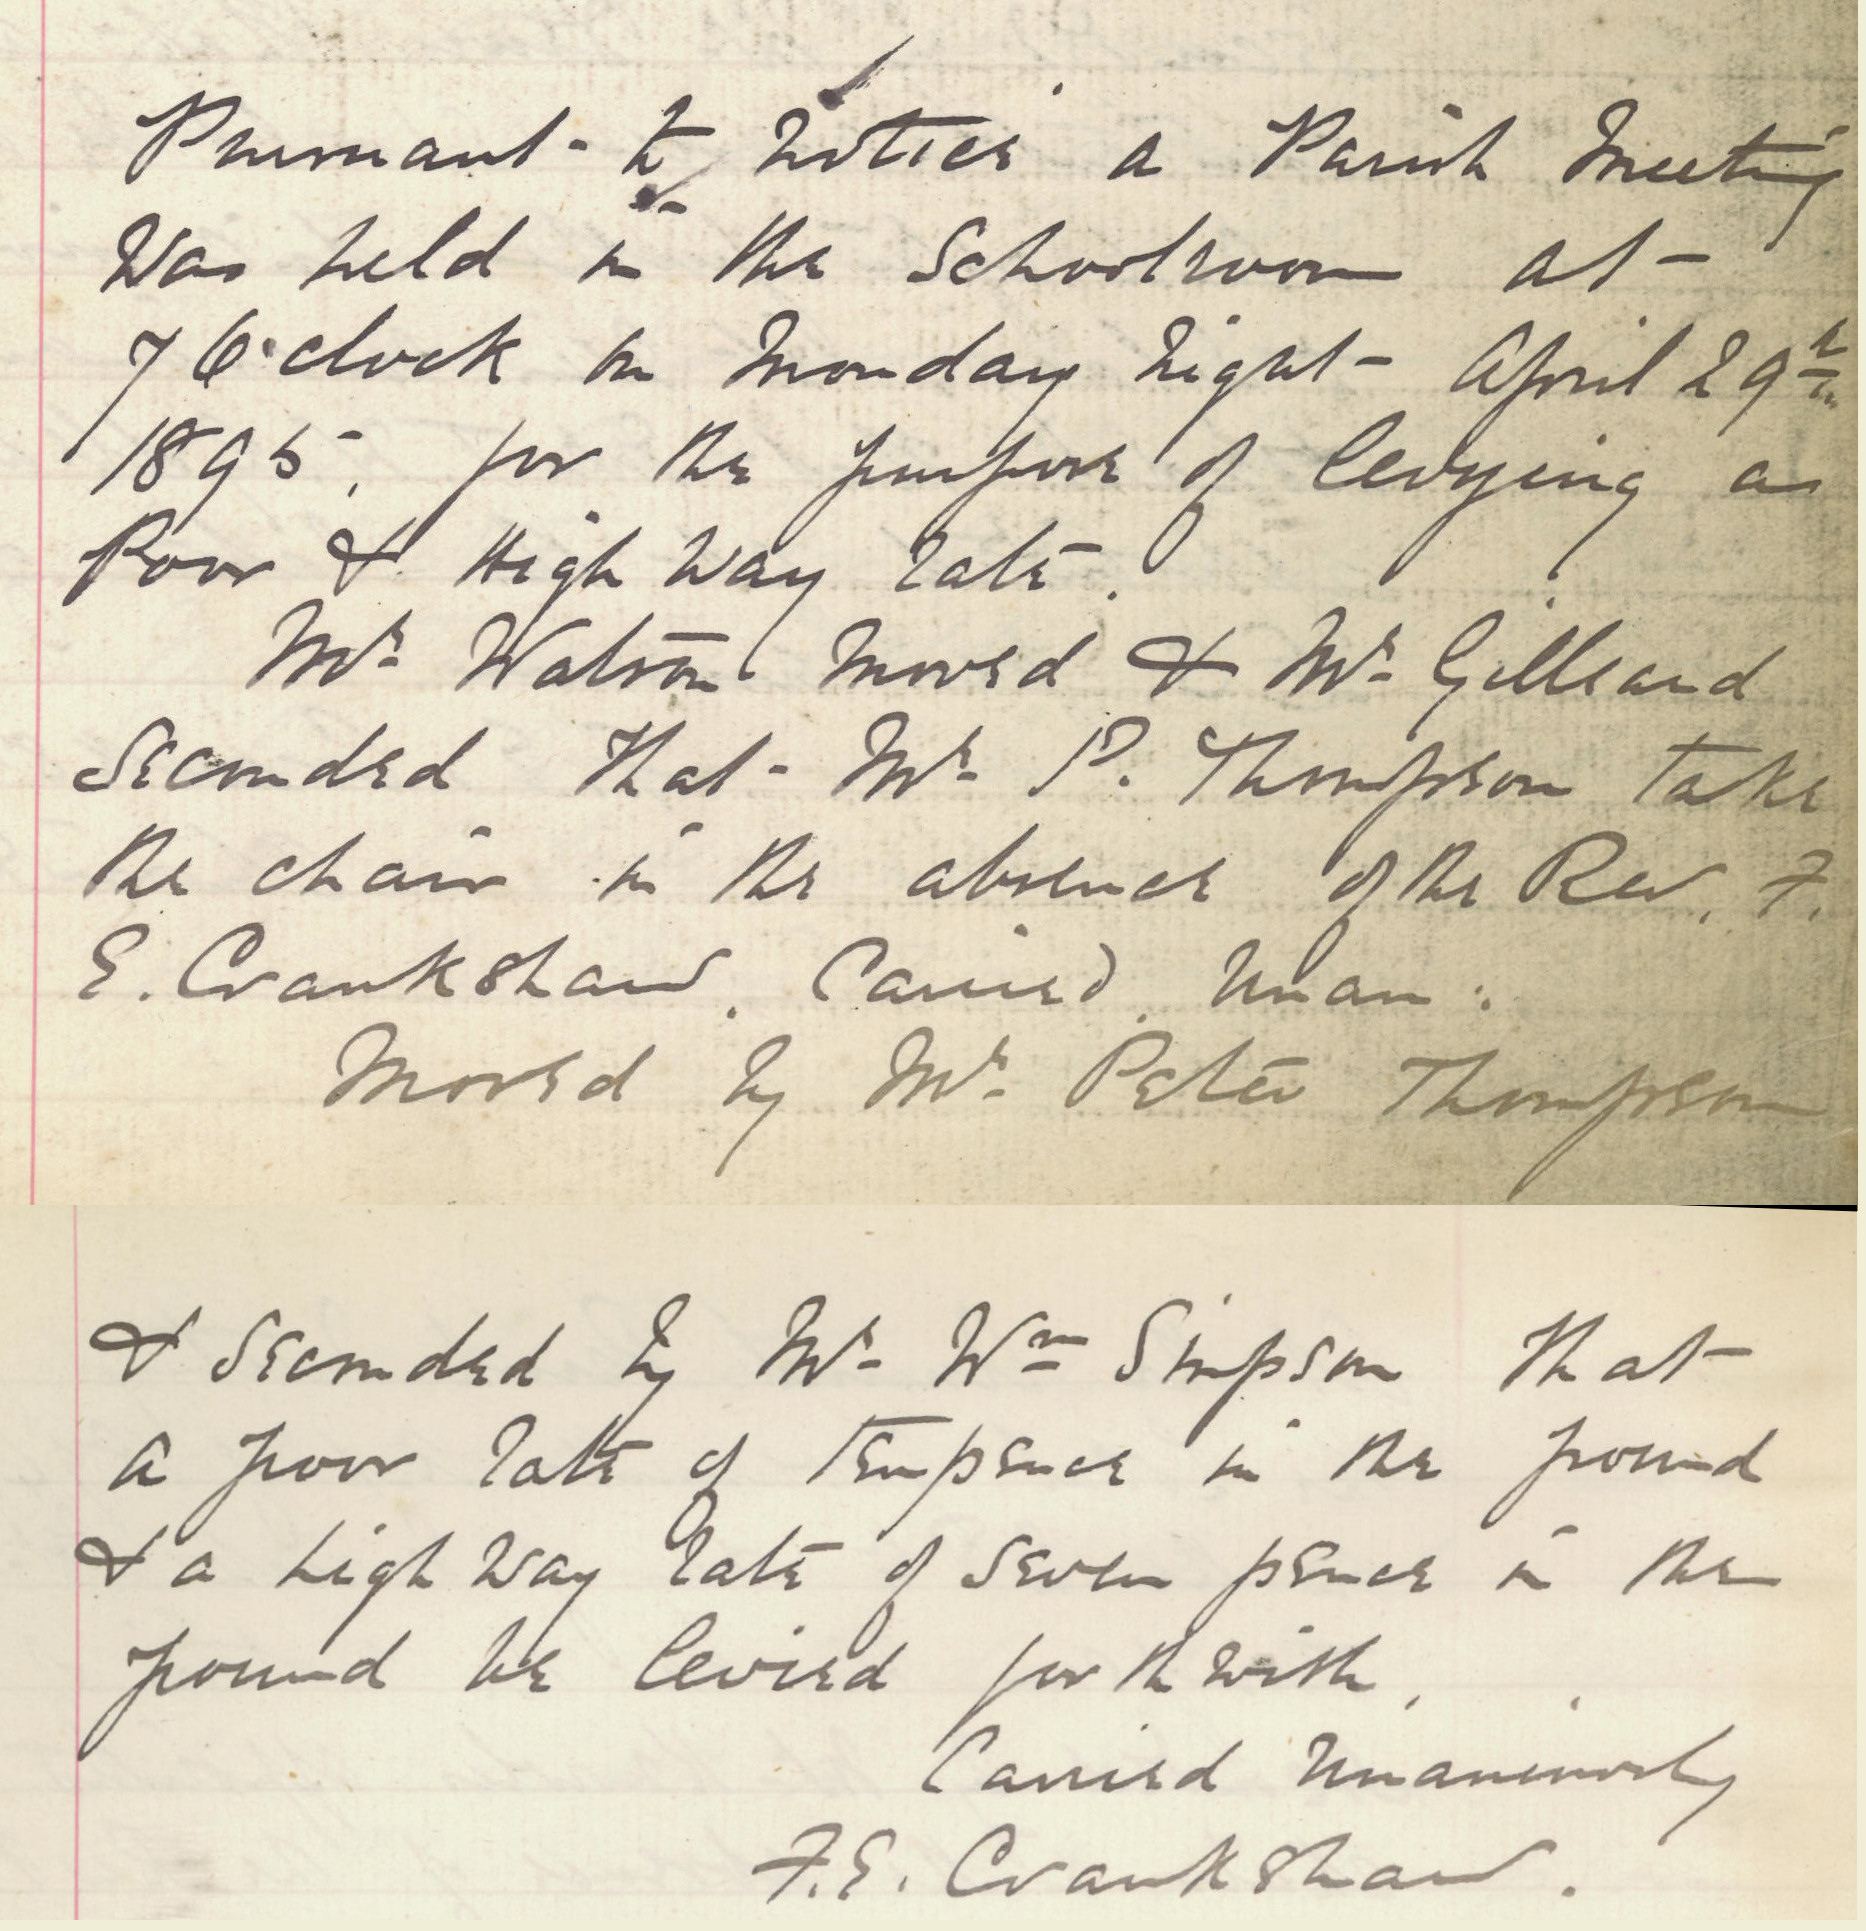 Pursuant to notice a Parish Meeting
was held in the Schoolroom at
7 O'clock on Monday night April 29th
1895, for the purpose of levying a
Poor & High Way rate.
Mr Watson moved & Mr Gillseand
seconded that Mr P. Thompson take
the chair in the absence of the Rev. F.
E. Crankshaw. Carried Unan:
Moved by Mr Peter Thompson
& seconded by Mr Wm Simpson that
a poor rate of tenpence in the pound
& a high way rate of seven pence in the
pound be levied forthwith.
Carried Unanimously
F.E. Crankshaw.